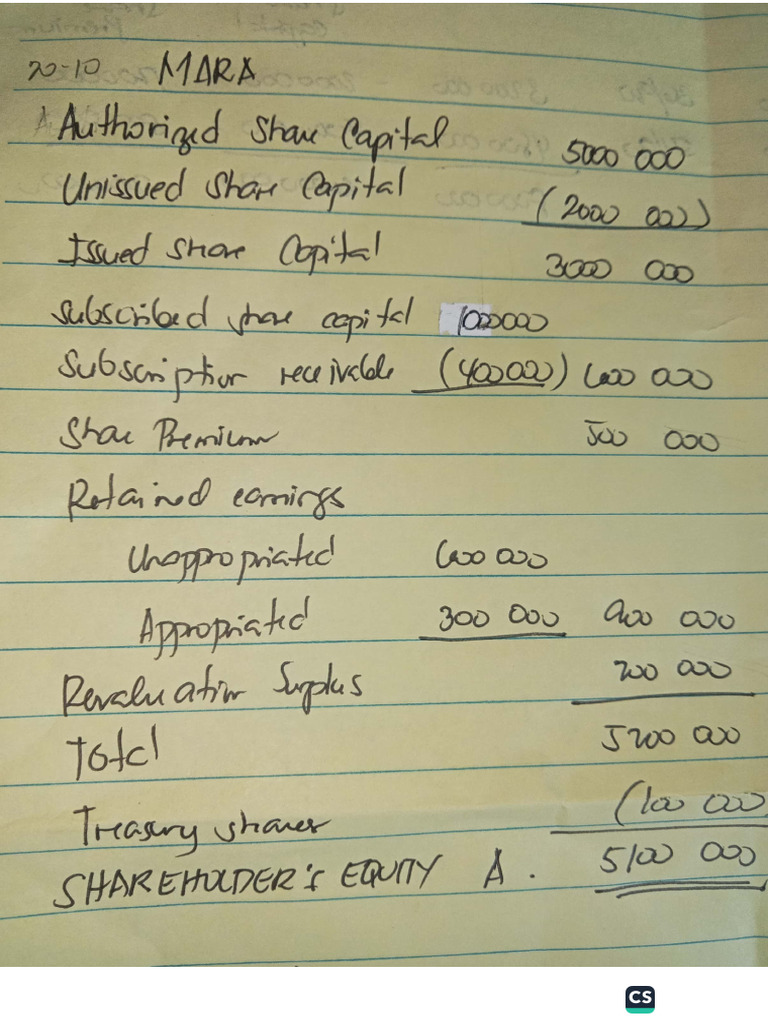 20-10 MARA
Authorized Share Capital 5000 000
Unissued Share Capital (2000 000)
Issued Share Capital 3000 000
Subscribed share capital 1000000
Subscription receivable (400000) 600 000
Share Premium 500 000
Retained earnings
Unappropriated 600 000
Appropriated 300 000 900 000
Revaluation Surplus 200 000
Total 5200 000
Treasury shares (100 000
SHAREHOLDER'S EQUITY A. 5100 000
CS